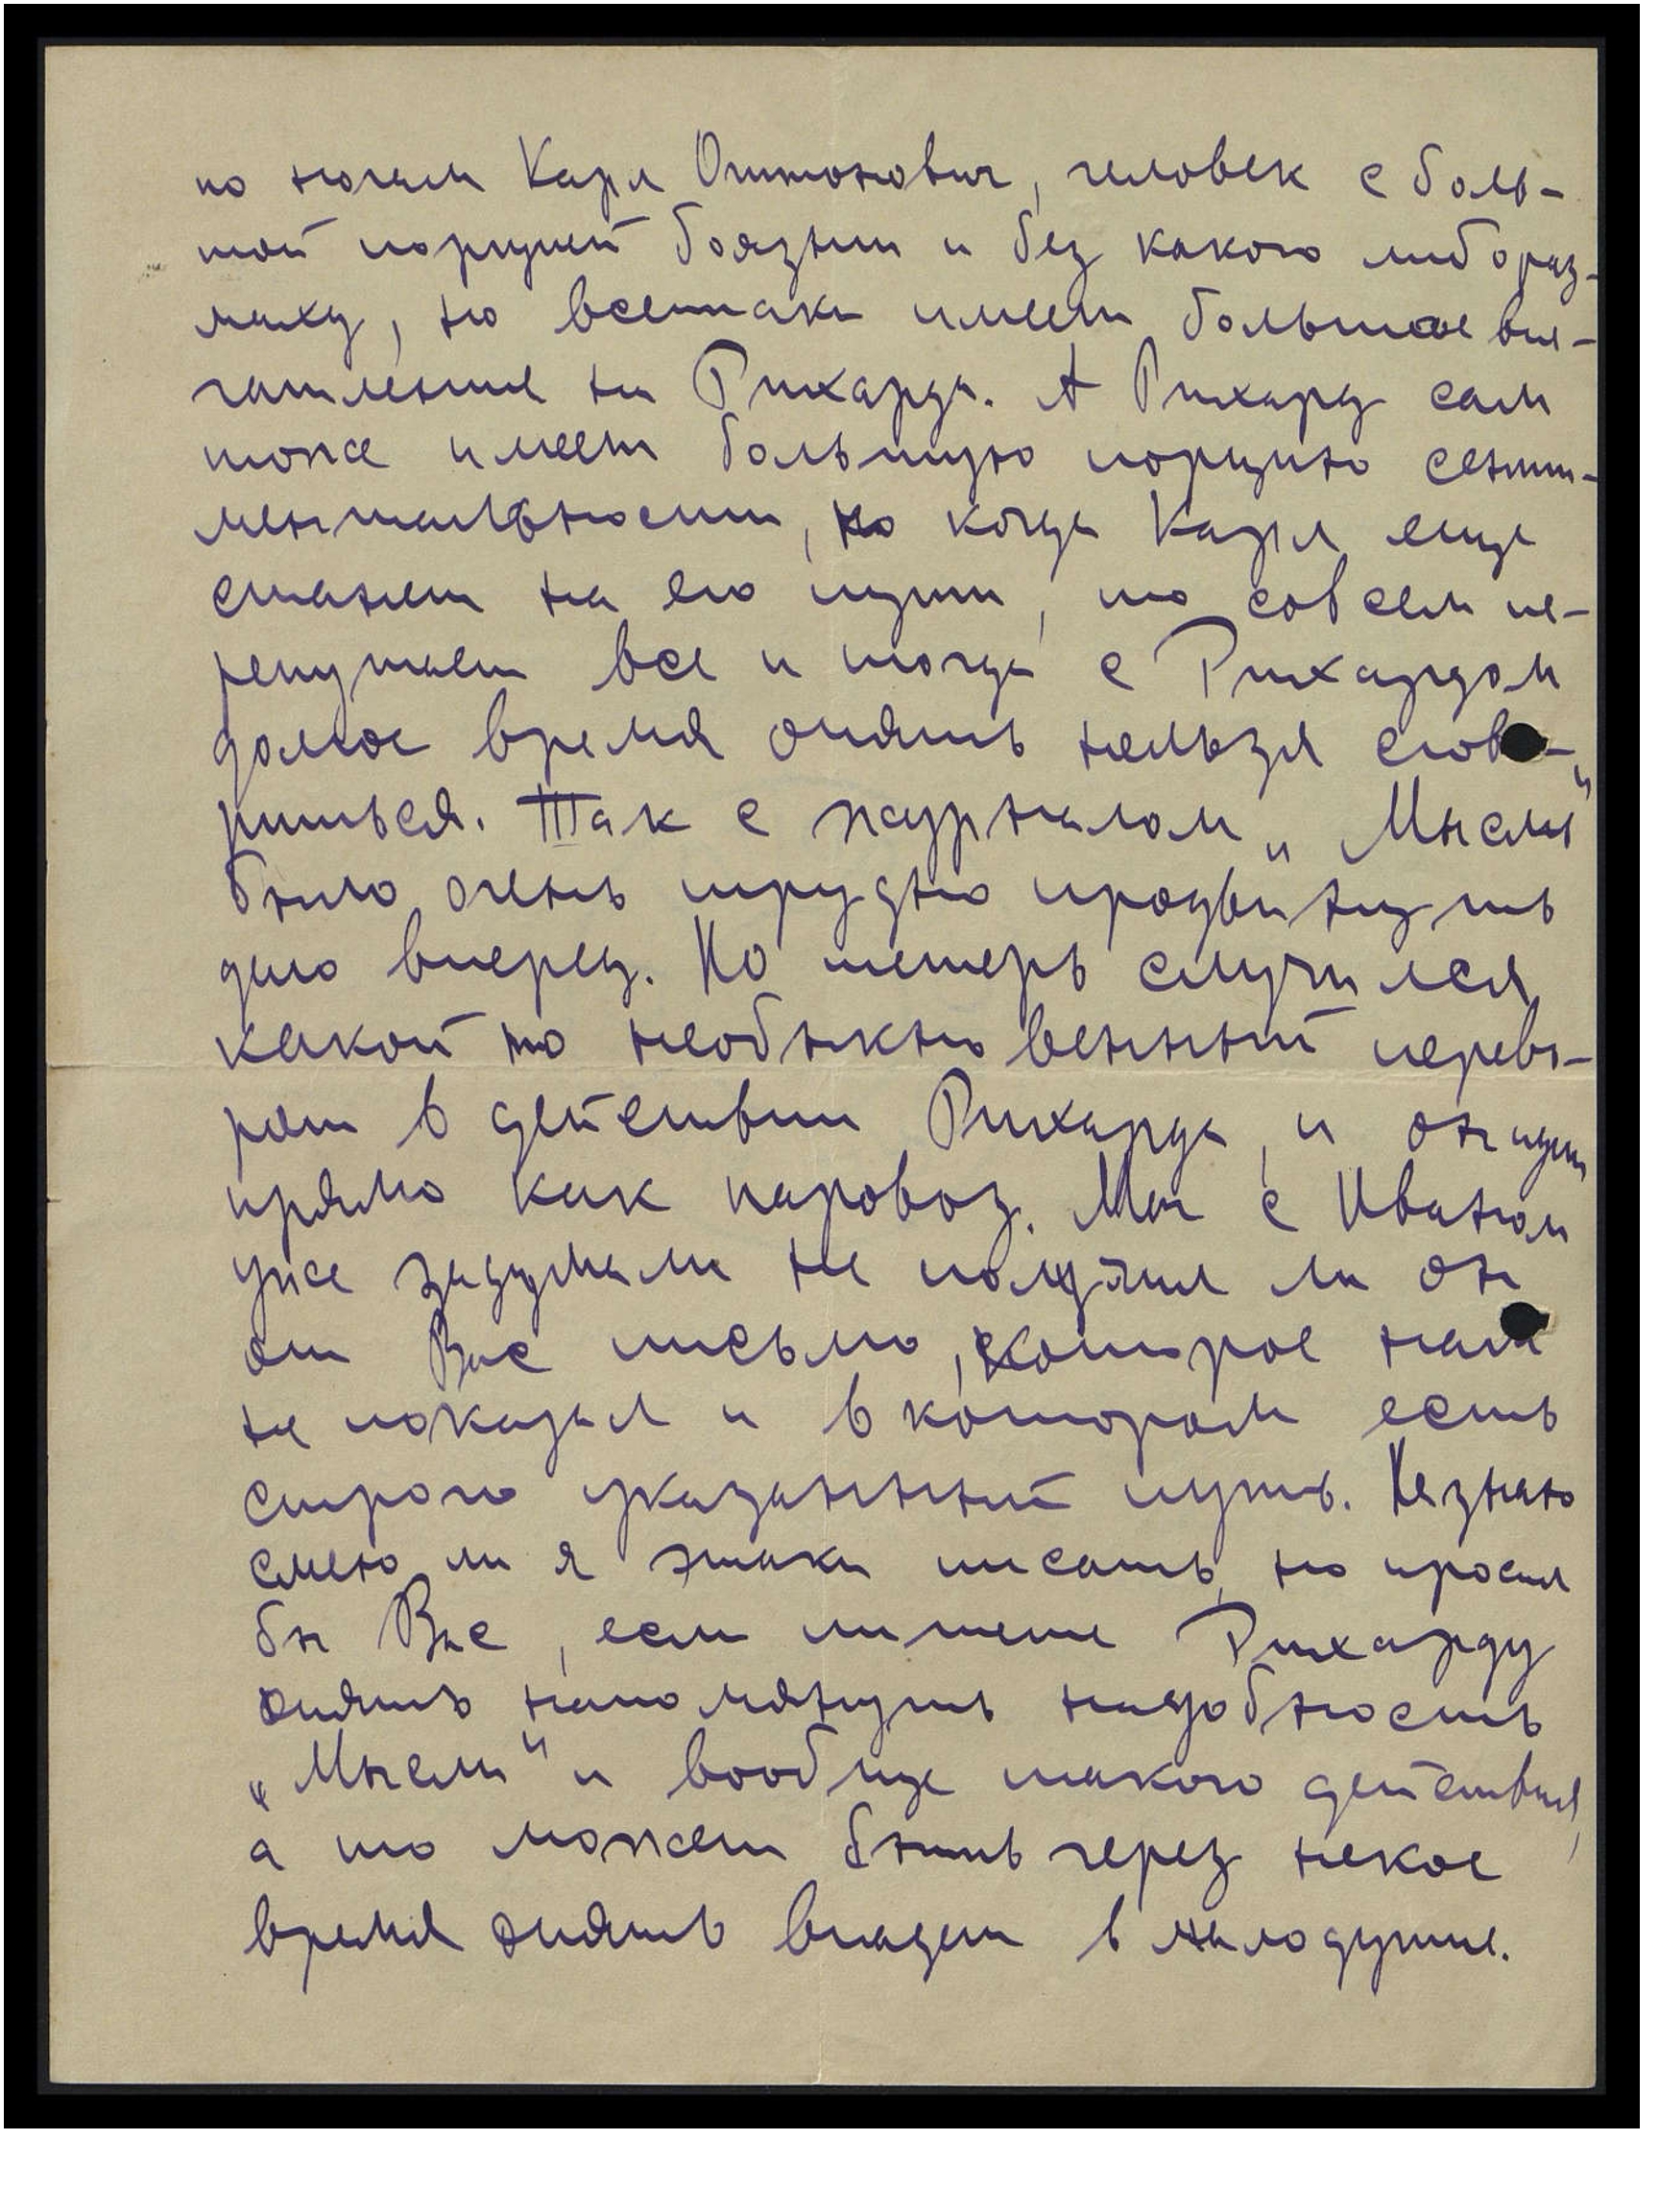 по ногам Карл Оттонович, человек с боль-
шой порцией боязни и без какого либо раз-
маху, но всетаки имеет большое впе-
чатление на Рихарда. А Рихард сам
тоже имеет большую порцию сенти-
ментальности, но когда Карл еще
станет на его пути, то совсем пе-
репутает все и тогда с Рихардом
долгое время опять нельзя сгово-
риться. Так с журналом „Мысль"
было очень трудно продвинуть
дело вперед. Но теперь случился
какой то необыкновенный перево-
рот в действии Рихарда, и он идет
прямо как паровоз. Мы с Иваном
уже задумали не получил ли он
от Вас письмо, которое нам
не показал и в котором есть
строго указанный путь. Не знаю
смею ли я этаки писать, но просил
бы Вас, если пишете Рихарду
опять напомянуть надобность
„Мысли" и вообще такого действия,
а то может быть через некое
время опять впадет в малодушие.